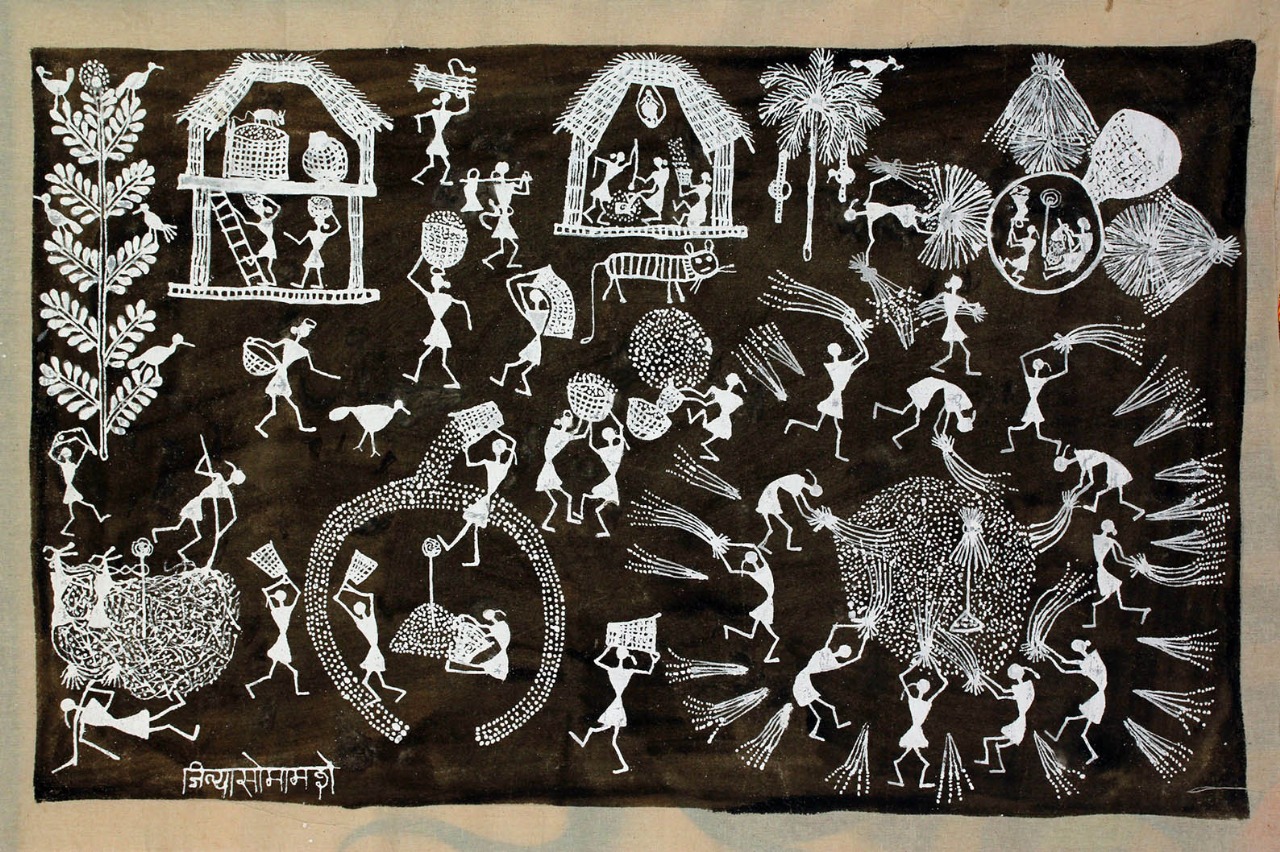 जिव्यासोमामशे